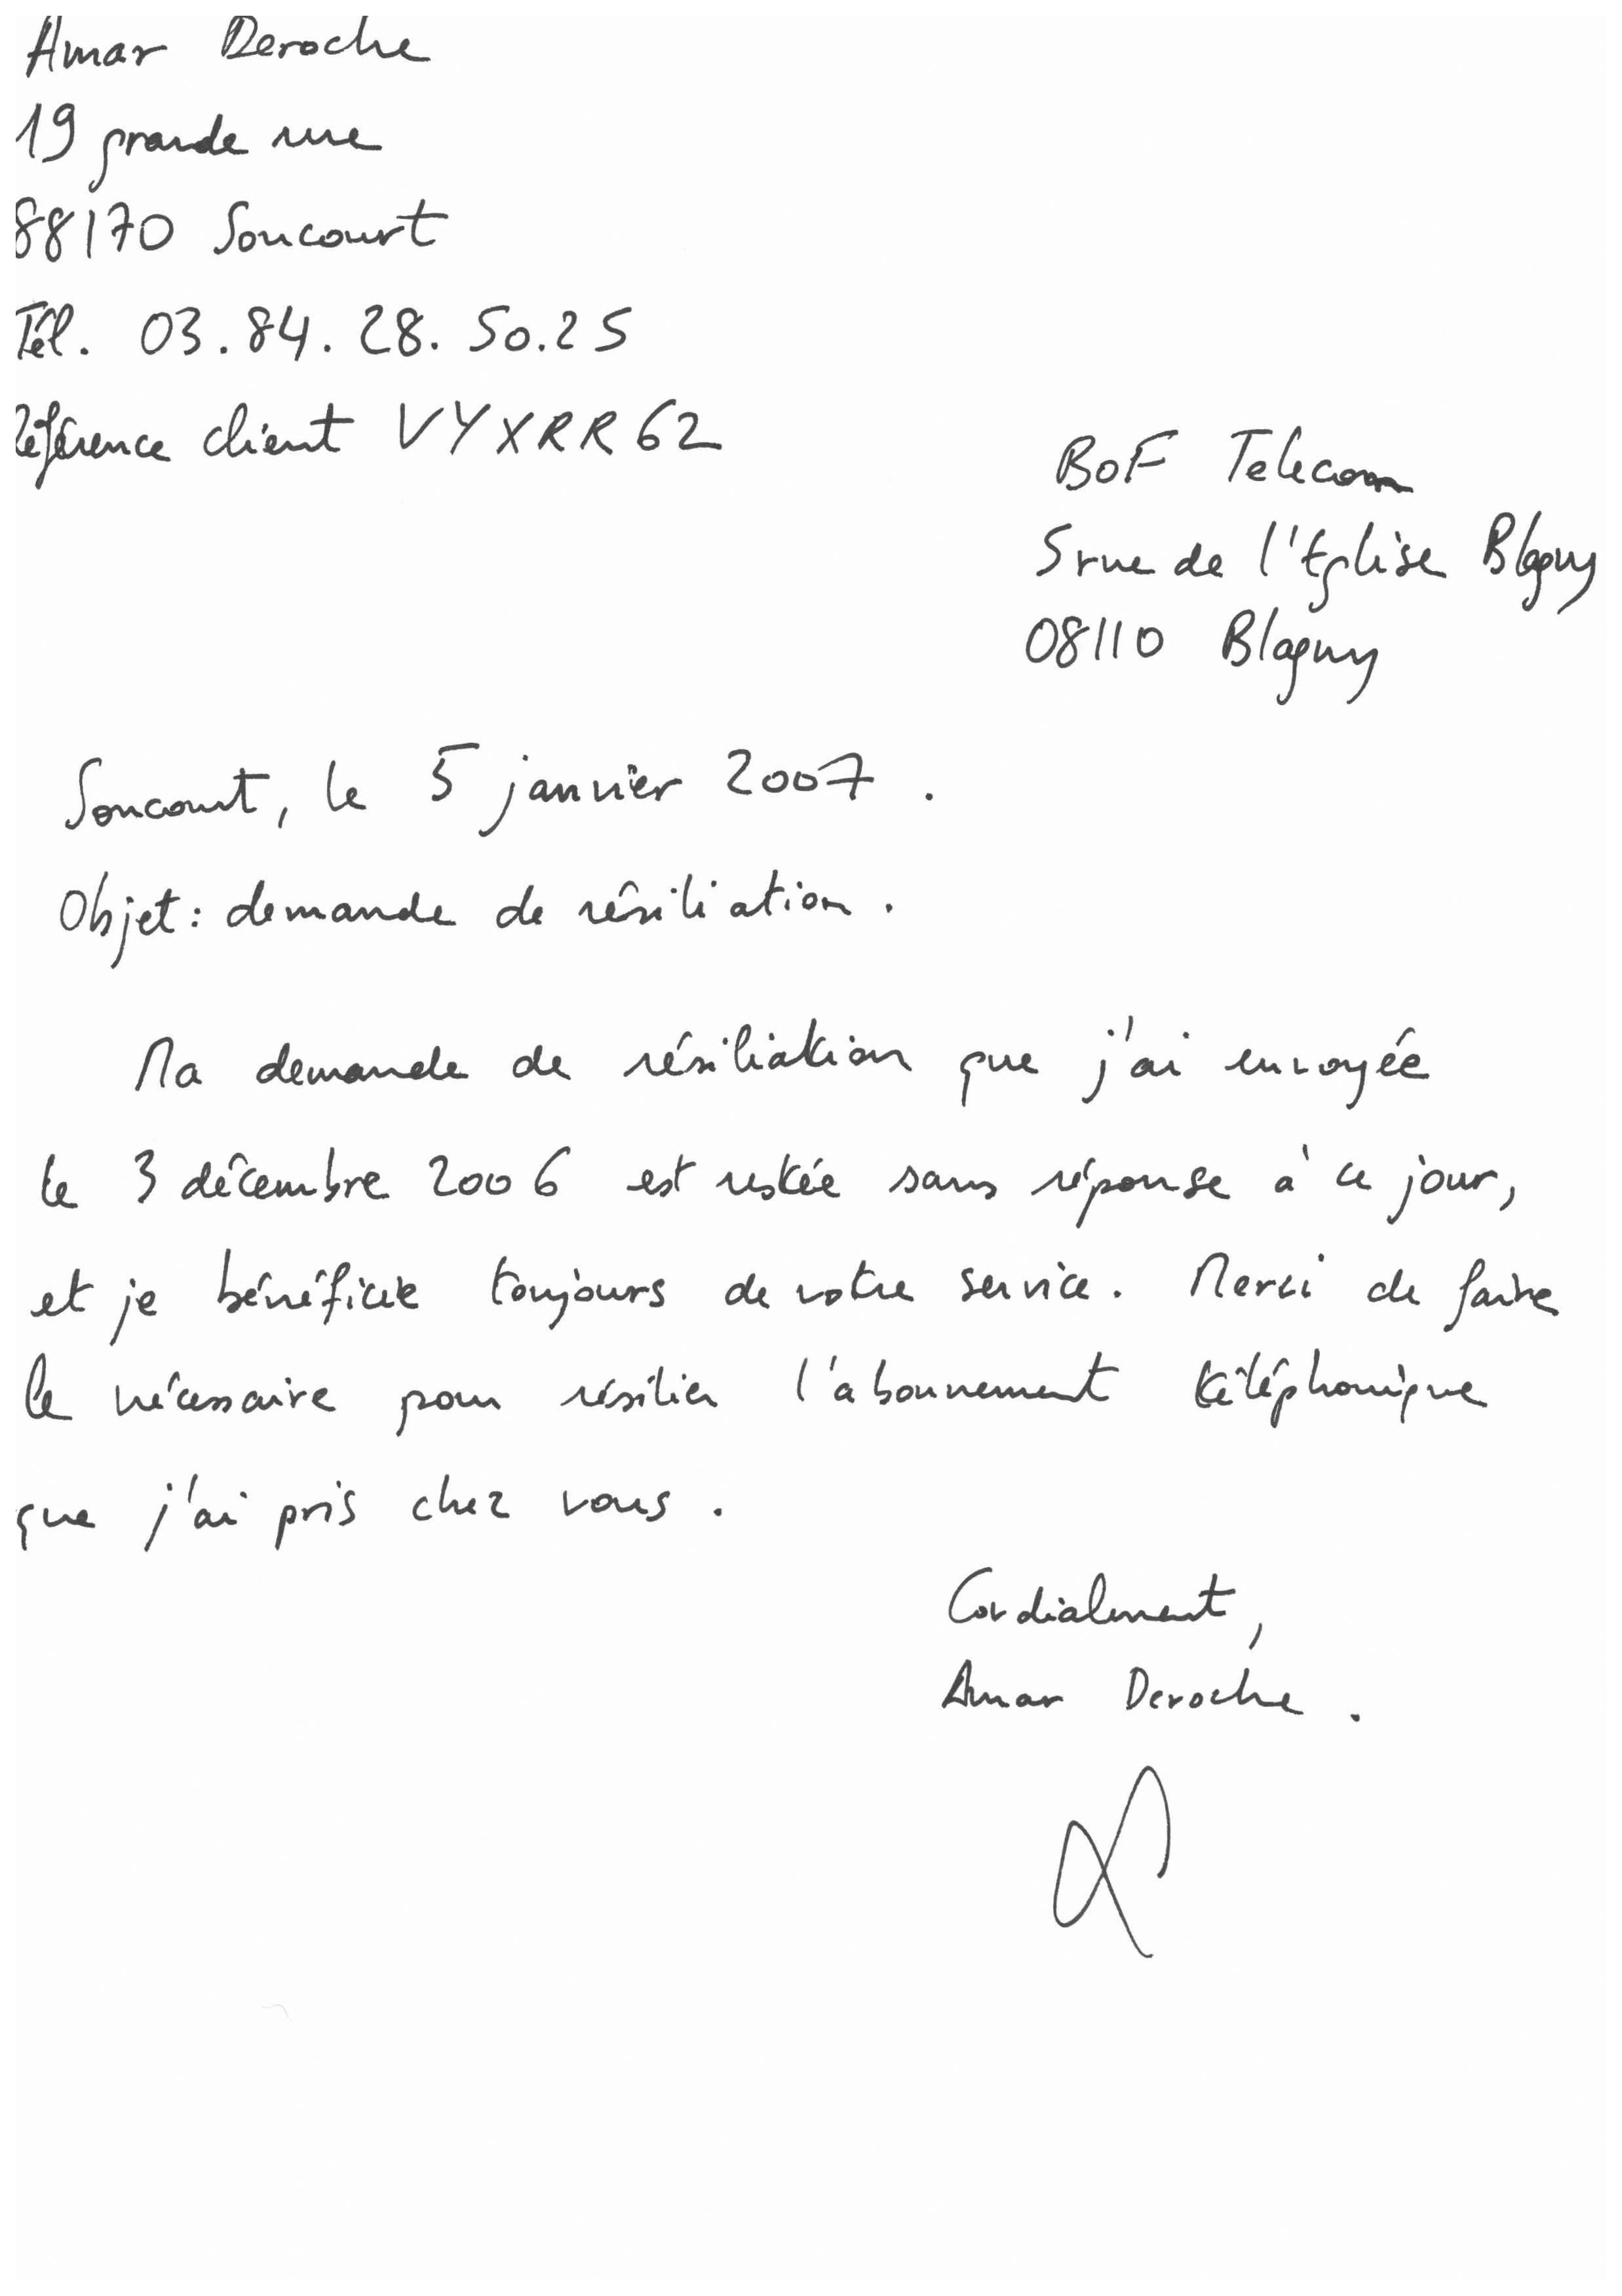 Amar Deroche
19 grande rue
88170 Soncourt
Tél. 03.84.28.50.25
Référence client VYXRR62
BoF Telecom
5 rue de l'Eglise Blagny
08110 Blagny
Soncourt, le 5 janvier 2007.
Objet : demande de résiliation.
Ma demande de résiliation que j'ai envoyée
le 3 décembre 2006 est restée sans réponse à ce jour,
et je bénéficie toujours de votre service. Merci de faire
le nécessaire pour résilier l'abonnement téléphonique
que j'ai pris chez vous.
Cordialement,
Amar Deroche.